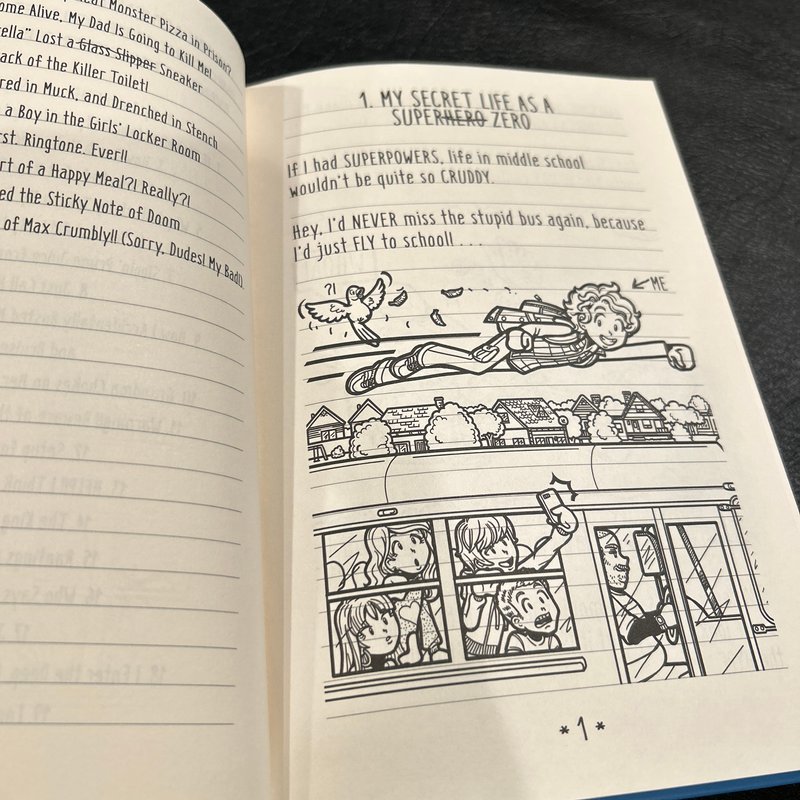 Monster Pizza in Prison?
ome Alive, My Dad Is Going to Kill Me!
ella" Lost a Glass Slipper Sneaker
ack of the Killer Toilet!
red in Muck, and Drenched in Stench
a Boy in the Girls' Locker Room
rst. Ringtone. Ever!!
rt of a Happy Meal?! Really?!
ed the Sticky Note of Doom
of Max Crumbly!! (Sorry, Dudes! My Bad!)
1. MY SECRET LIFE AS A
SUPERHERO ZERO
If I had SUPERPOWERS, life in middle school
wouldn't be quite so CRUDDY.
Hey, I'd NEVER miss the stupid bus again, because
I'd just FLY to school! . . .
?!
ME
*1*